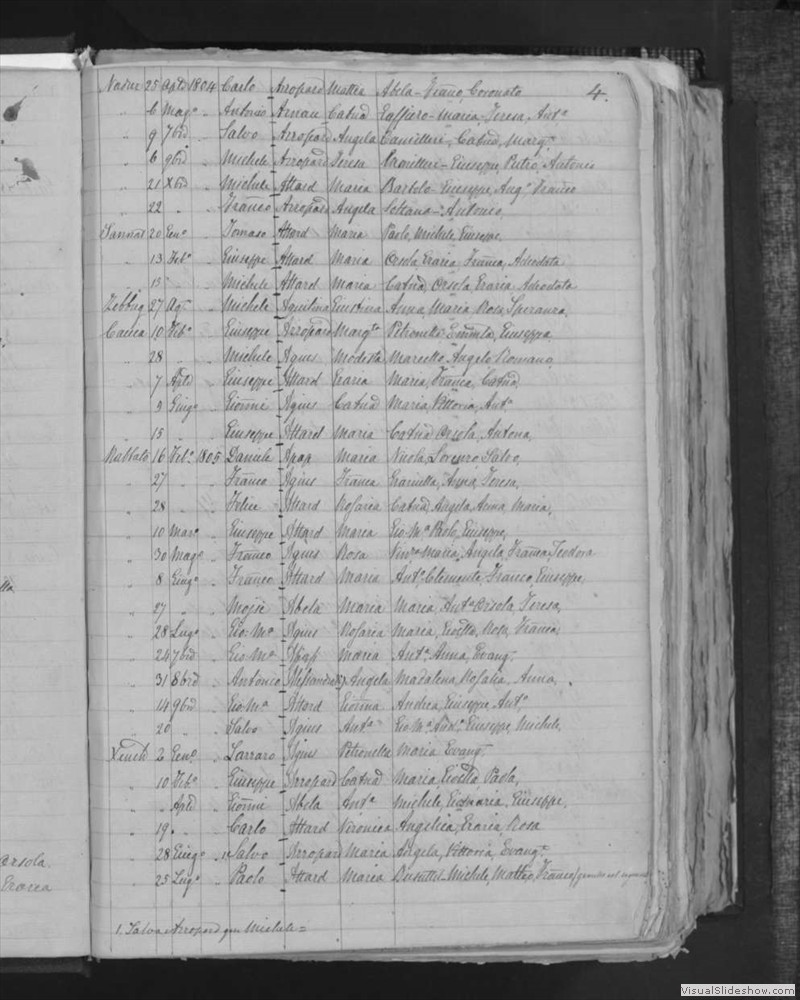 Nadur 25 Aple 1804 Carlo Arropard Mattia Abela - Franco, Coronato 4.
" 6 Mago " Antonio Arnau Catna Zaffiero - Maria, Teresa, Anta
" 9 7bre " Salvo Arropard Angela Camilleri, Catna, Marga
" 6 9bre " Michele Arropard Teresa Camilleri - Giuseppe, Pietro, Antonio
" 21 Xbre " Michele Attard Maria Bartolo Giuseppe, Ango Franco
" 22 " " Franco Arropard Angela Antonio,
Sannat 20 Geno " Tomaso Attard Maria Paolo, Michele, Giuseppe,
" 13 Febo " Giuseppe Attard Maria Orsola, Grazia, Franca, Adeodata
" 15 " " Michele Attard Maria Catna, Orsola, Grazia, Adeodata
Zebbug 27 Ago " Michele Aquilina Giustina Anna, Maria, Rosa, Speranza,
Caccia 10 Febo " Giuseppe Arropard Margta Petronilla Giuseppa,
" 28 " " Michele Agius Modesta Marcello Angelo Romano,
" 7 Aple " Giuseppe Attard Grazia Maria, Franca, Catna
" 9 Giugo " Gionni Agius Catna Maria, Vittoria, Anta
" 15 " " Giuseppe Attard Maria Catna Orsola, Antona,
Rabbato 16 Febo 1805 Daniele Apap Maria Nicola, Lorenzo, Salvo,
" 27 " " Franco Agius Franca Graziulla, Anna, Teresa,
" 28 " " Felice Attard Rosaria Catna, Angela, Anna, Maria,
" 10 Maro " Giuseppe Attard Maria Gio: Ma Paolo, Giuseppe,
" 30 Mago " Franco Agius Rosa Maria, Angela, Franca, Teodora
" 8 Giugo " Franco Attard Maria Anto Clemente, Franco, Giuseppe
" 27 " " Mojse Abela Maria Maria, Anta Orsola, Teresa,
" 28 Lugo " Gio: Ma Agius Rosaria Maria, Rosa, Franca,
" 24 7bre " Gio: Ma Maria Anta Anna, Evanga
" 31 8bre " Antonio Alessandro Angela Madalena, Rosalia, Anna,
" 14 9bre " Gio: Ma Attard Gionna Andrea, Giuseppe, Anto
" 20 " " Salvo Agius Anta Gio: Ma Anda Giuseppe, Michele,
Xeuch 2 Geno " Lazzaro Agius Petronella Maria Evanga
" 10 Febo " Giuseppe Arropard Catna Maria, Paola,
" " Aple " Gionni Abela Anta Michele, Giuseppe,
" 19 " " Carlo Attard Veronica Angelica, Grazia, Rosa
" 28 Giugo " 1 Salvo Arropard Maria Angela, Vittoria, Evanga
" 25 Lugo " Paolo Attard Maria Busuttil - Michele, Matteo, Franco
1. Salvo Arropard qm Michele =
Orsola
Grazia
VisualSlideshow.com